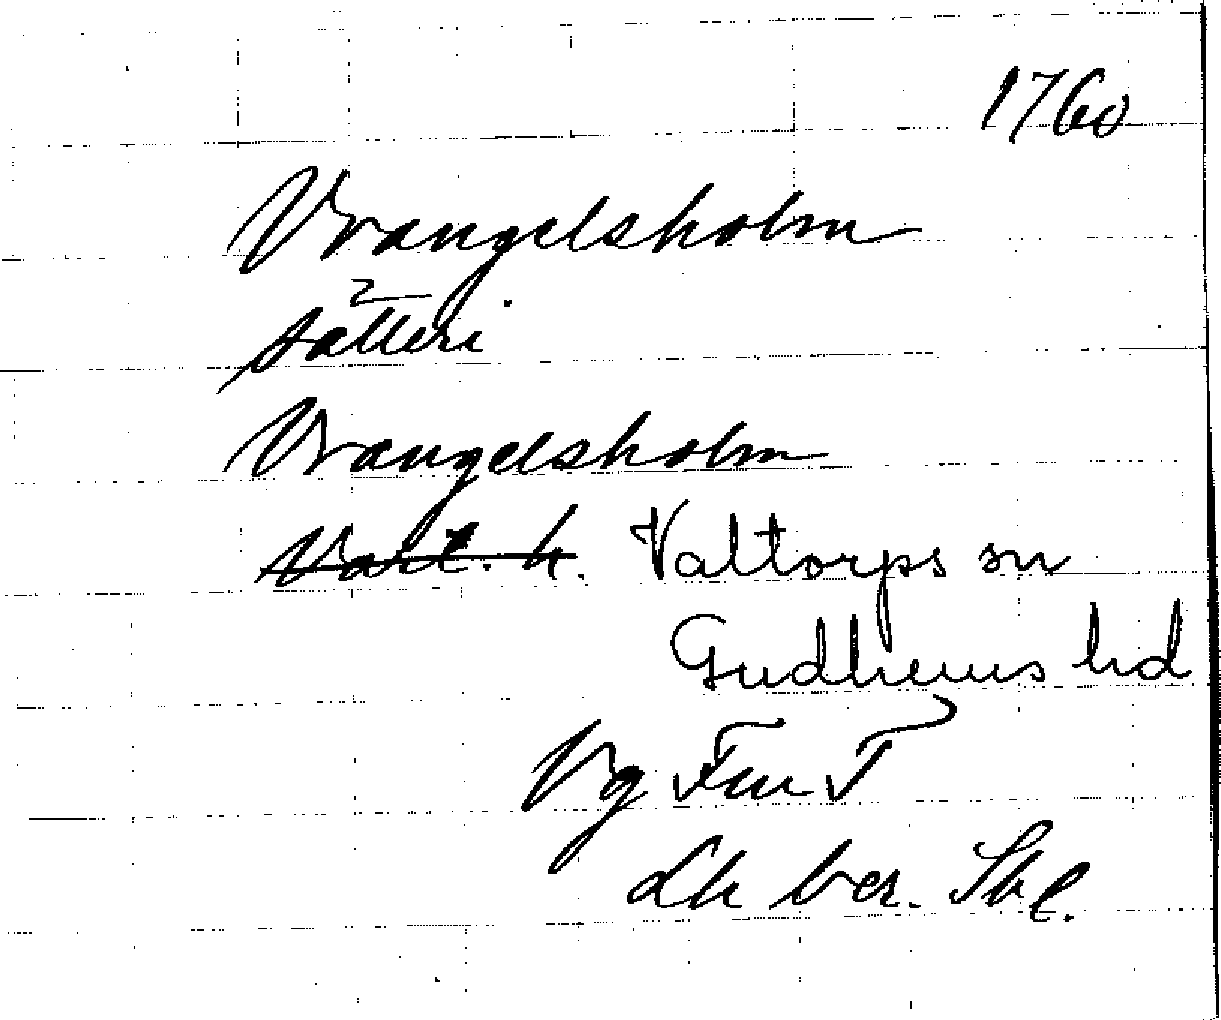 1760
Vrangelsholm
säteri
Vrangelsholm
Vart. h. Valtorps sn
Gudhems hd
Vg